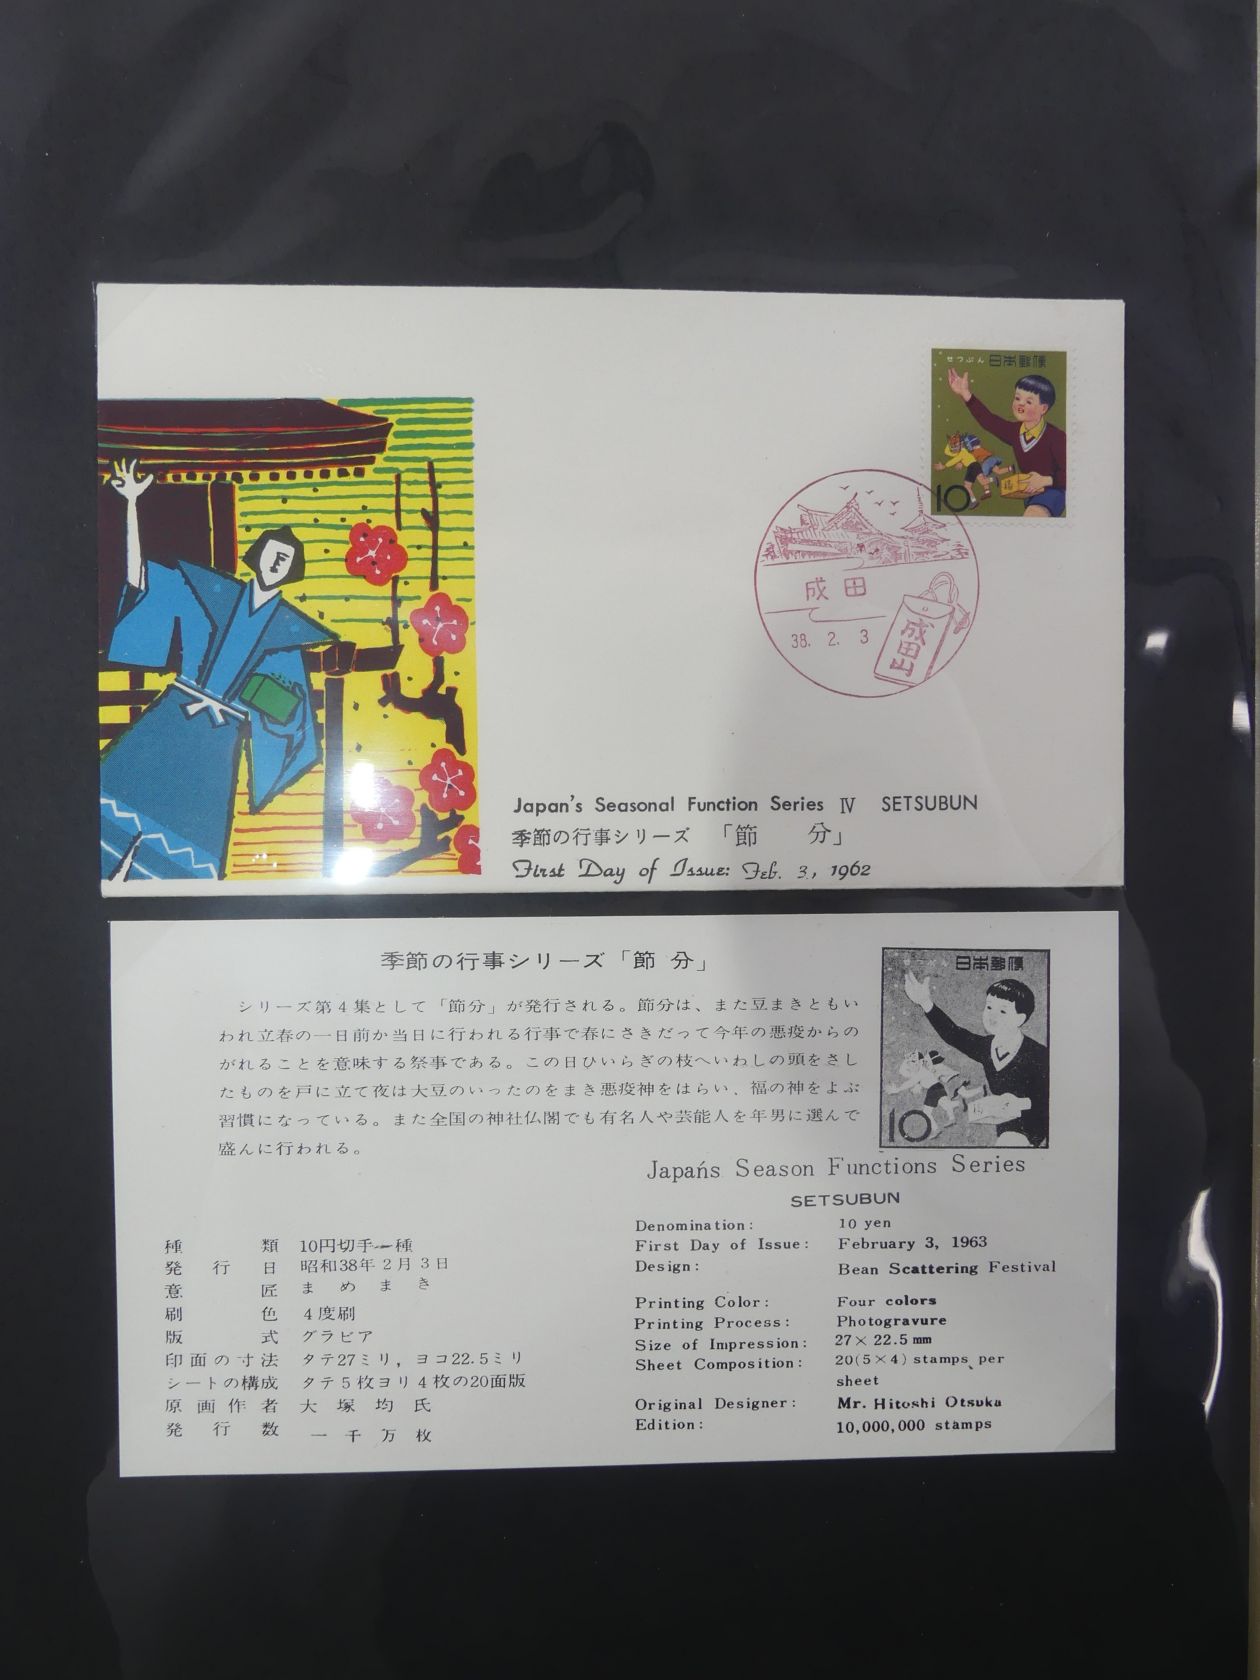 せつぶん 日本郵便
10
福
成田
38. 2. 3
成田山
Japan's Seasonal Function Series Ⅳ SETSUBUN
季節の行事シリーズ 「節 分」
First Day of Issue: Feb. 3, 1962
季節の行事シリーズ「節 分」
シリーズ第4集として「節分」が発行される。節分は、また豆まきともい
われ立春の一日前か当日に行われる行事で春にさきだって今年の悪疫からの
がれることを意味する祭事である。この日ひいらぎの枝へいわしの頭をさし
たものを戸に立て夜は大豆のいったのをまき悪疫神をはらい、福の神をよぶ
習慣になっている。また全国の神社仏閣でも有名人や芸能人を年男に選んで
盛んに行われる。
日本郵便
10
Japańs Season Functions Series
SETSUBUN
種類 10円切手一種
発行日 昭和38年2月3日
意匠 まめまき
刷色 4度刷
版式 グラビア
印面の寸法 タテ27ミリ，ヨコ22.5ミリ
シートの構成 タテ5枚ヨリ4枚の20面版
原画作者 大塚均氏
発行数 一千万枚
Denomination: 10 yen
First Day of Issue: February 3, 1963
Design: Bean Scattering Festival
Printing Color: Four colors
Printing Process: Photogravure
Size of Impression: 27×22.5㎜
Sheet Composition: 20(5×4) stamps per
sheet
Original Designer: Mr. Hitoshi Otsuka
Edition: 10,000,000 stamps